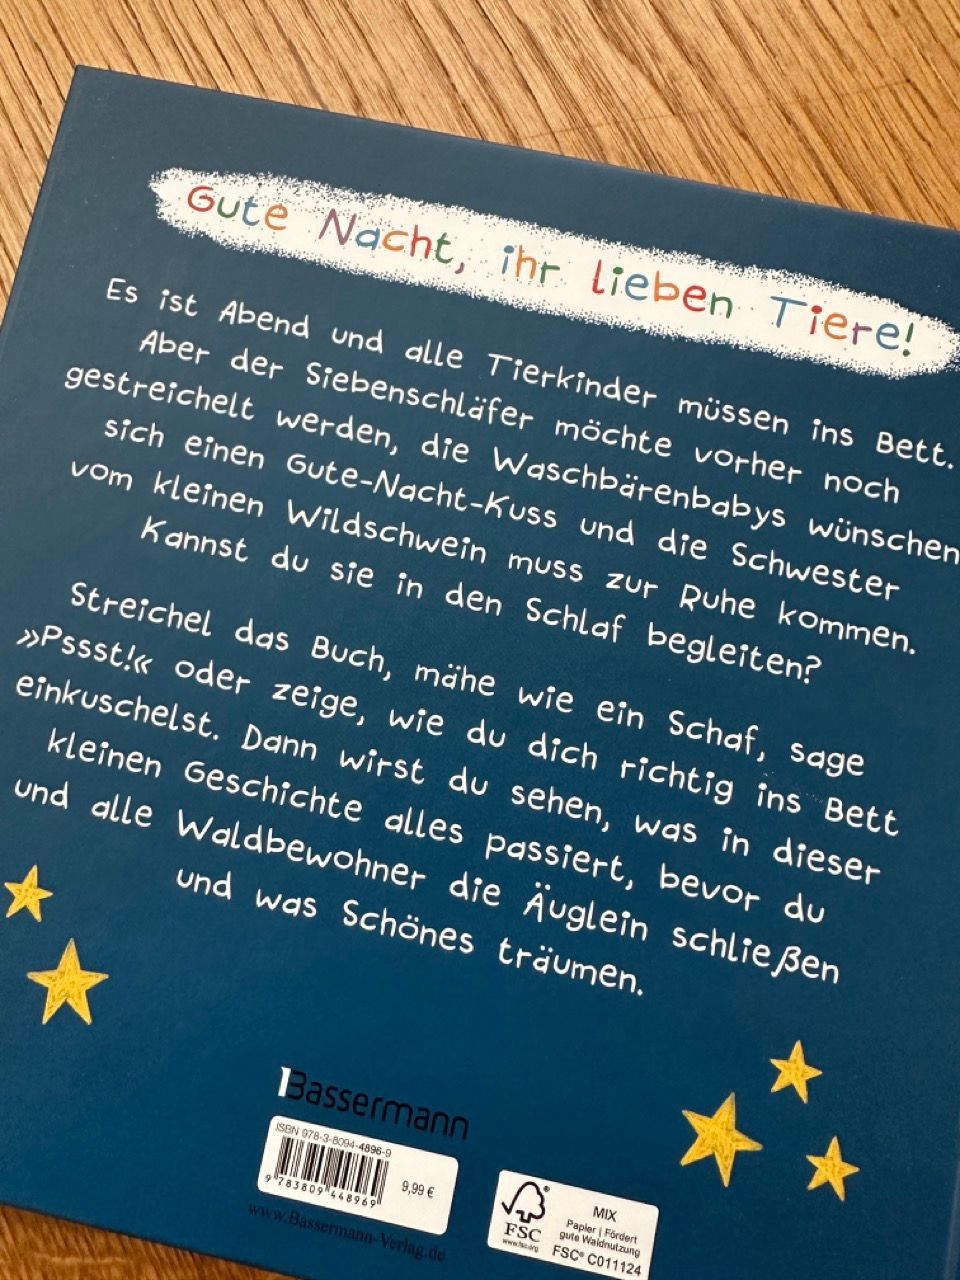 Gute Nacht, ihr lieben Tiere!
Es ist Abend und alle Tierkinder müssen ins Bett.
Aber der Siebenschläfer möchte vorher noch
gestreichelt werden, die Waschbärenbabys wünschen
sich einen Gute-Nacht-Kuss und die Schwester
vom kleinen Wildschwein muss zur Ruhe kommen.
Kannst du sie in den Schlaf begleiten?
Streichel das Buch, mähe wie ein Schaf, sage
»Pssst!« oder zeige, wie du dich richtig ins Bett
einkuschelst. Dann wirst du sehen, was in dieser
kleinen Geschichte alles passiert, bevor du
und alle Waldbewohner die Äuglein schließen
und was Schönes träumen.
Bassermann
ISBN 978-3-8094-4896-9
9,99 €
9 783809 448969
www.Bassermann-Verlag.de
FSC
www.fsc.org
MIX
Papier | Fördert
gute Waldnutzung
FSC® C011124